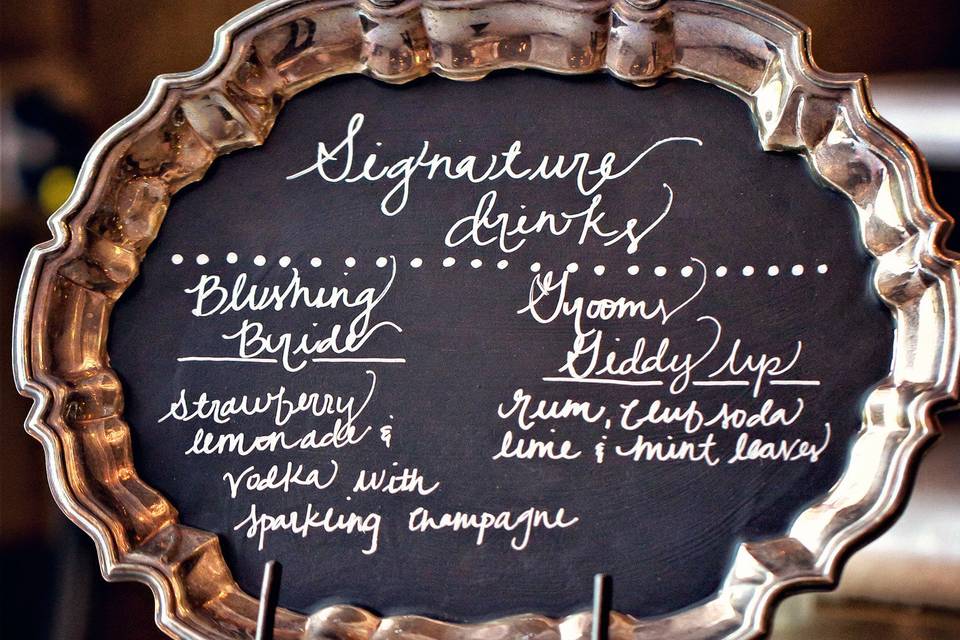 Signature
drinks
Blushing
Bride
strawberry
lemonade &
vodka with
sparkling champagne
Grooms
Giddy Up
rum, club soda
lime & mint leaves